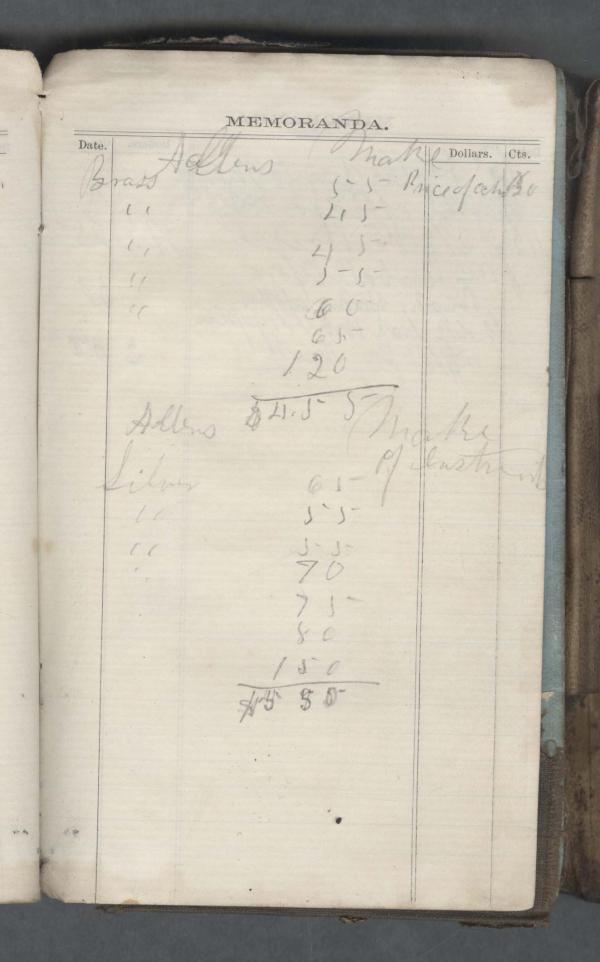 MEMORANDA.
Date. Dollars. Cts.
Allens Make
Brass 55 Price of
" 45
" 45
" 55
" 60
65
120
$455
Allens Make
of
Silver 65
" 55
" 55
" 70
75
80
150
$550